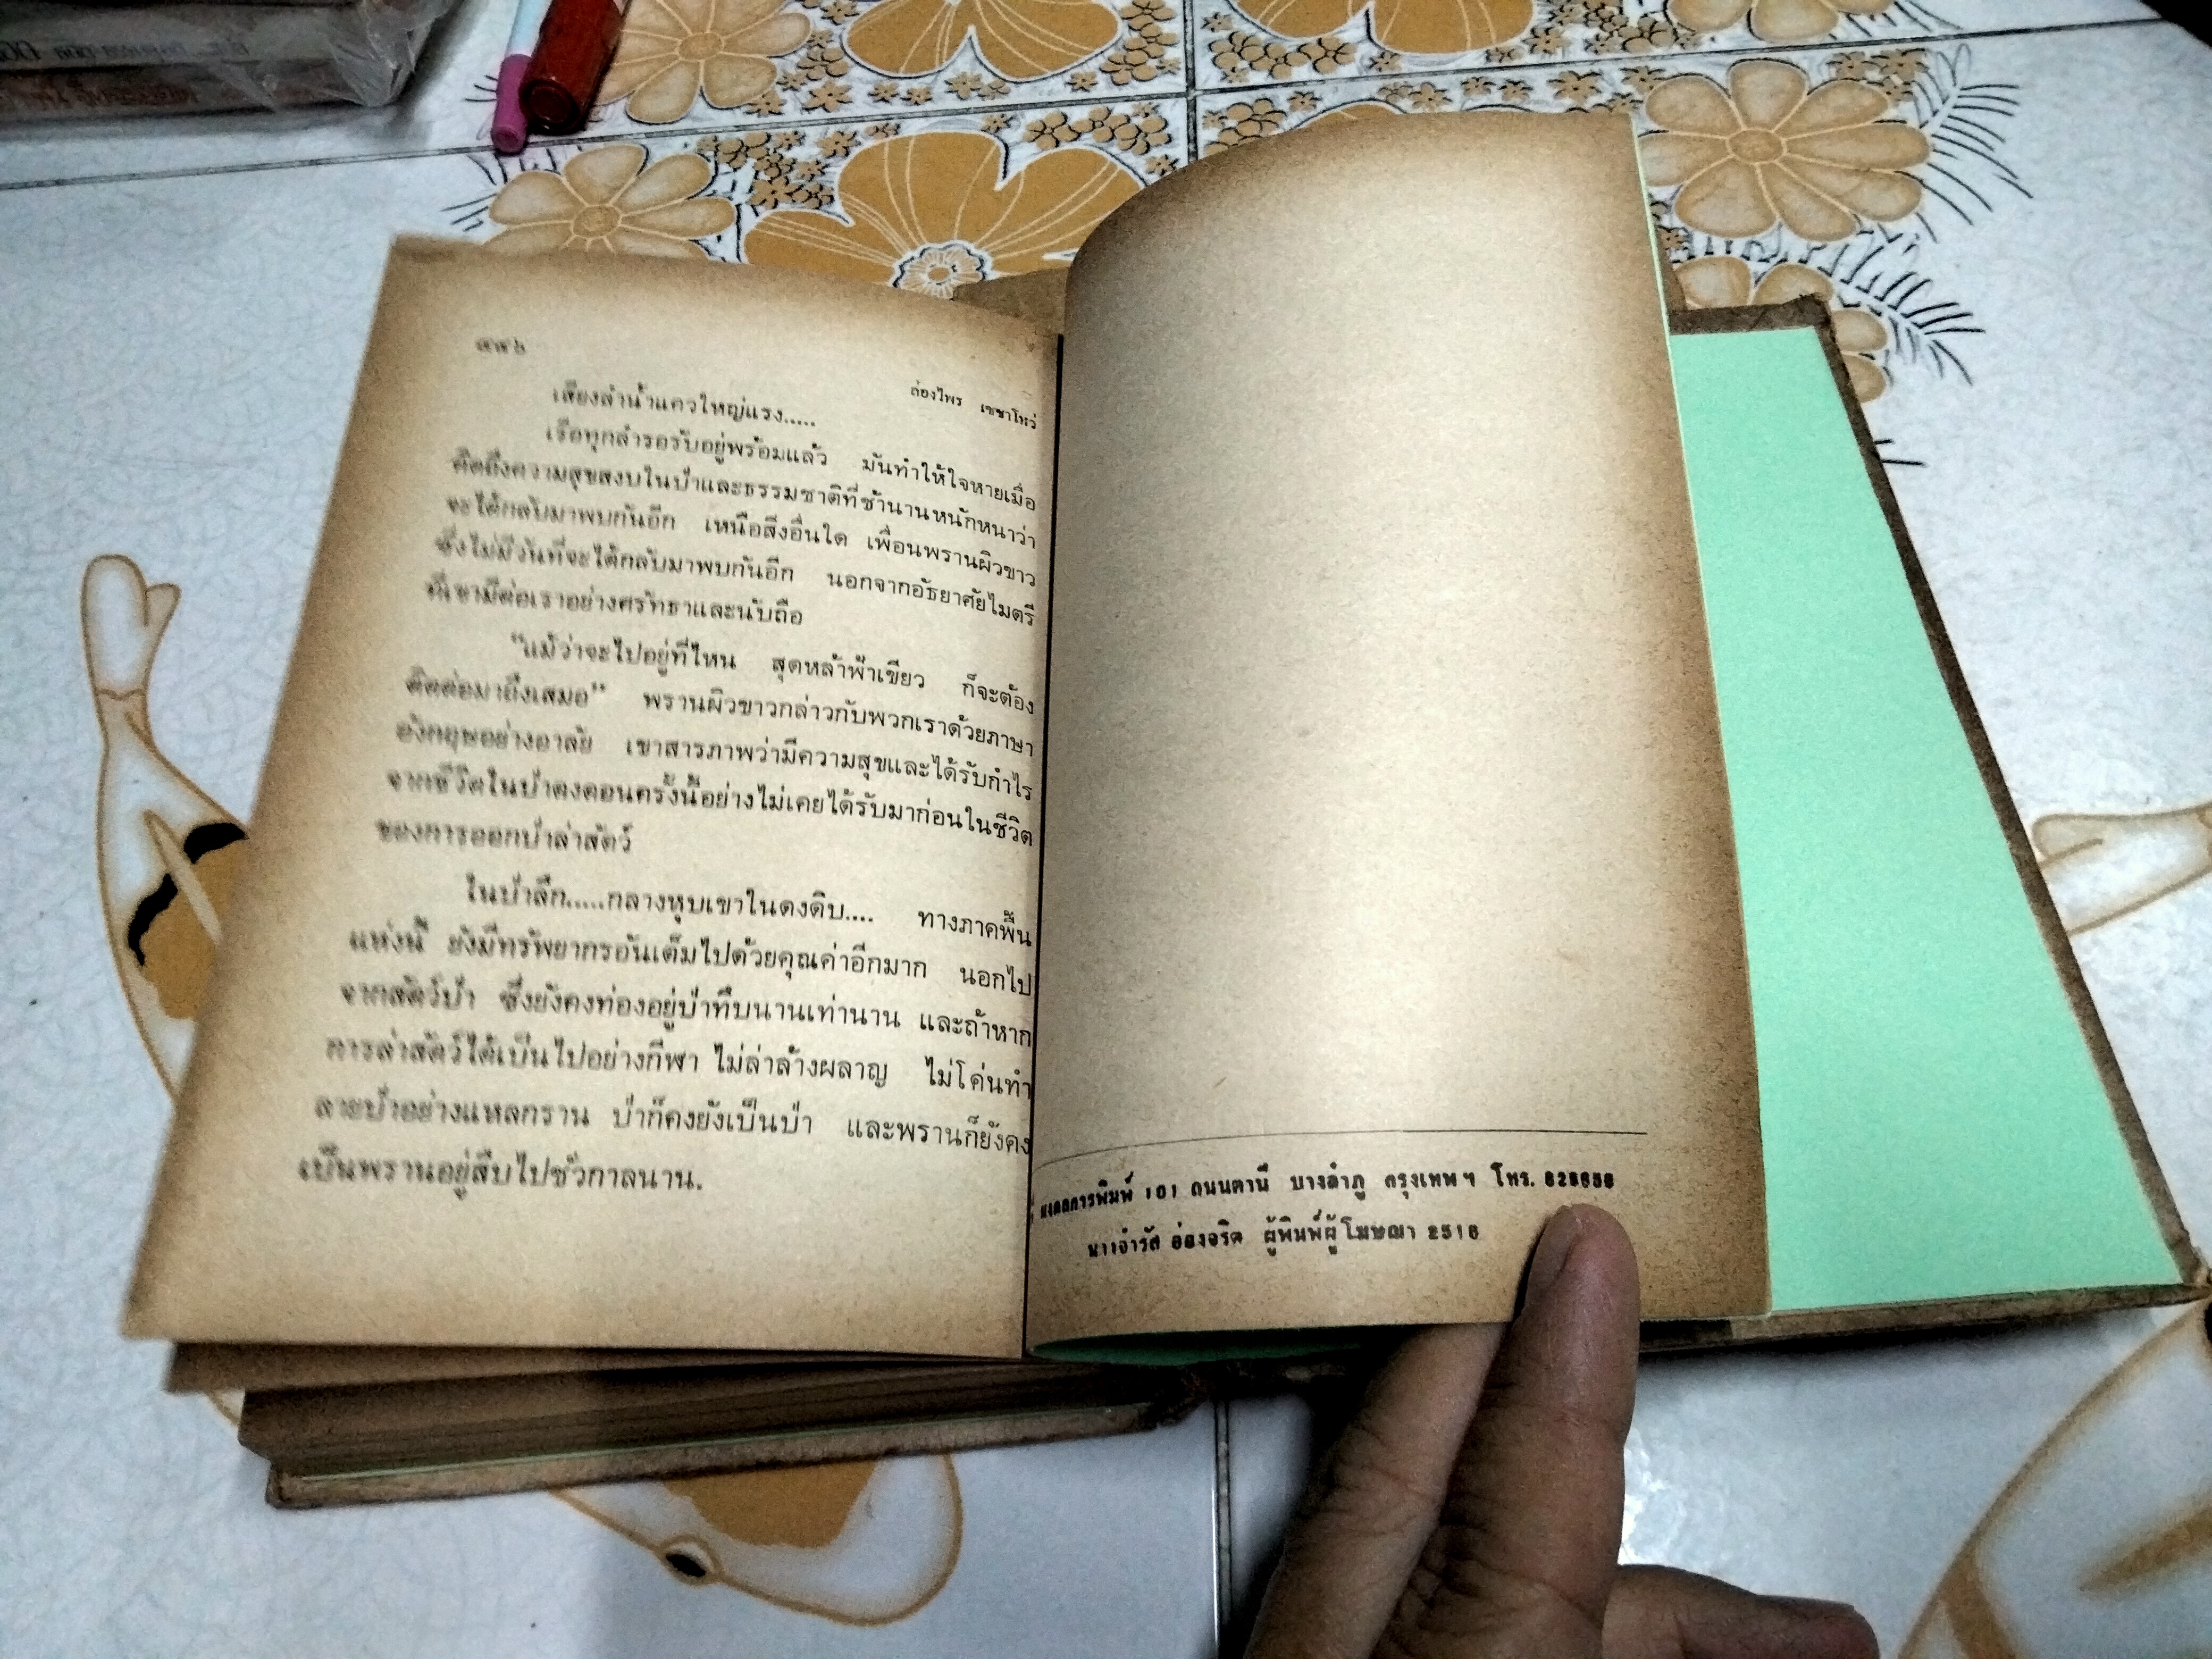 ล่องไพร เซซาโหว่
เสียงลำน้ำแควใหญ่แรง.....
เรือทุกลำรอรับอยู่พร้อมแล้ว มันทำให้ใจหายเมื่อ
คิดถึงความสุขสงบในป่าและธรรมชาติที่ช้านานหนักหนาว่า
จะได้กลับมาพบกันอีก เหนือสิ่งอื่นใด เพื่อนพรานผิวขาว
ซึ่งไม่มีวันที่จะได้กลับมาพบกันอีก นอกจากอัธยาศัยไมตรี
ที่เขามีต่อเราอย่างศรัทธาและนับถือ
"แม้ว่าจะไปอยู่ที่ไหน สุดหล้าฟ้าเขียว ก็จะต้อง
ติดต่อมาถึงเสมอ" พรานผิวขาวกล่าวกับพวกเราด้วยภาษา
อังกฤษอย่างอาลัย เขาสารภาพว่ามีความสุขและได้รับกำไร
จากชีวิตในป่าดงดอนครั้งนี้อย่างไม่เคยได้รับมาก่อนในชีวิต
ของการออกป่าล่าสัตว์
ในป่าลึก.....กลางหุบเขาในดงดิบ.... ทางภาคพื้น
แห่งนี้ ยังมีทรัพยากรอันเต็มไปด้วยคุณค่าอีกมาก นอกไป
จากสัตว์ป่า ซึ่งยังคงท่องอยู่ป่าทึบนานเท่านาน และถ้าหาก
การล่าสัตว์ได้เป็นไปอย่างกีฬา ไม่ล่าล้างผลาญ ไม่โค่นทำ
ลายป่าอย่างแหลกราน ป่าก็คงยังเป็นป่า และพรานก็ยังคง
เป็นพรานอยู่สืบไปชั่วกาลนาน.
มงคลการพิมพ์ 101 ถนนตานี บางลำภู กรุงเทพฯ โทร.
นายจำรัส ผู้พิมพ์ผู้โฆษณา 2516